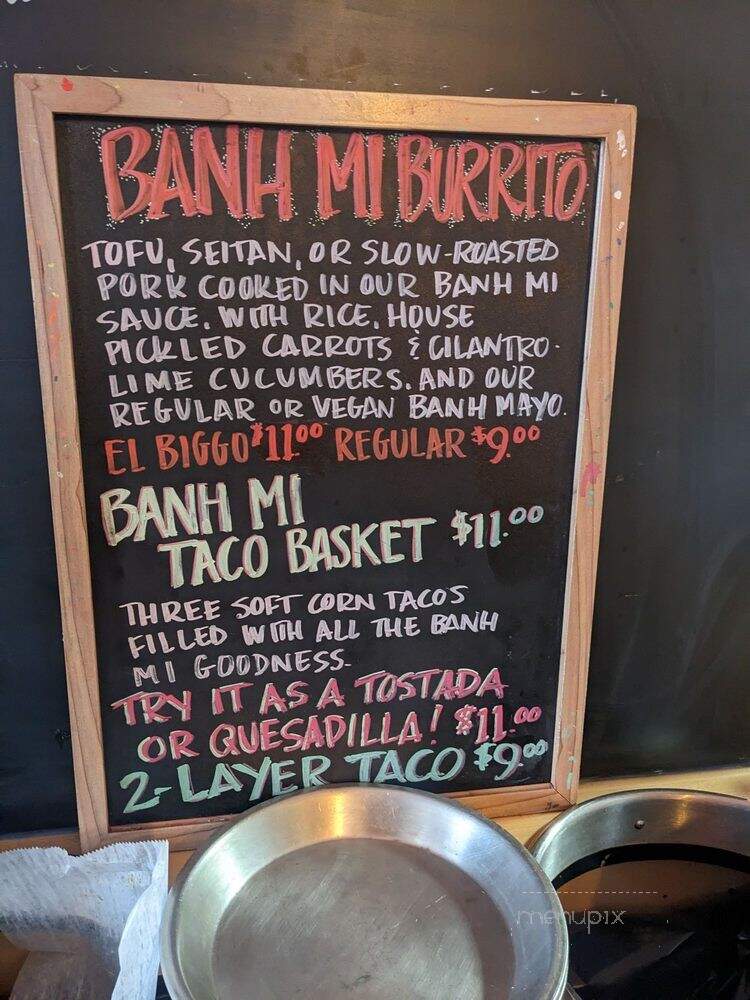 BANH MI BURRITO
TOFU, SEITAN, OR SLOW-ROASTED
PORK COOKED IN OUR BANH MI
SAUCE. WITH RICE, HOUSE
PICKLED CARROTS & CILANTRO-
LIME CUCUMBERS. AND OUR
REGULAR OR VEGAN BANH MAYO.
EL BIGGO $11.00 REGULAR $9.00
BANH MI
TACO BASKET $11.00
THREE SOFT CORN TACOS
FILLED WITH ALL THE BANH
MI GOODNESS.
TRY IT AS A TOSTADA
OR QUESADILLA! $11.00
2-LAYER TACO $9.00
menupix